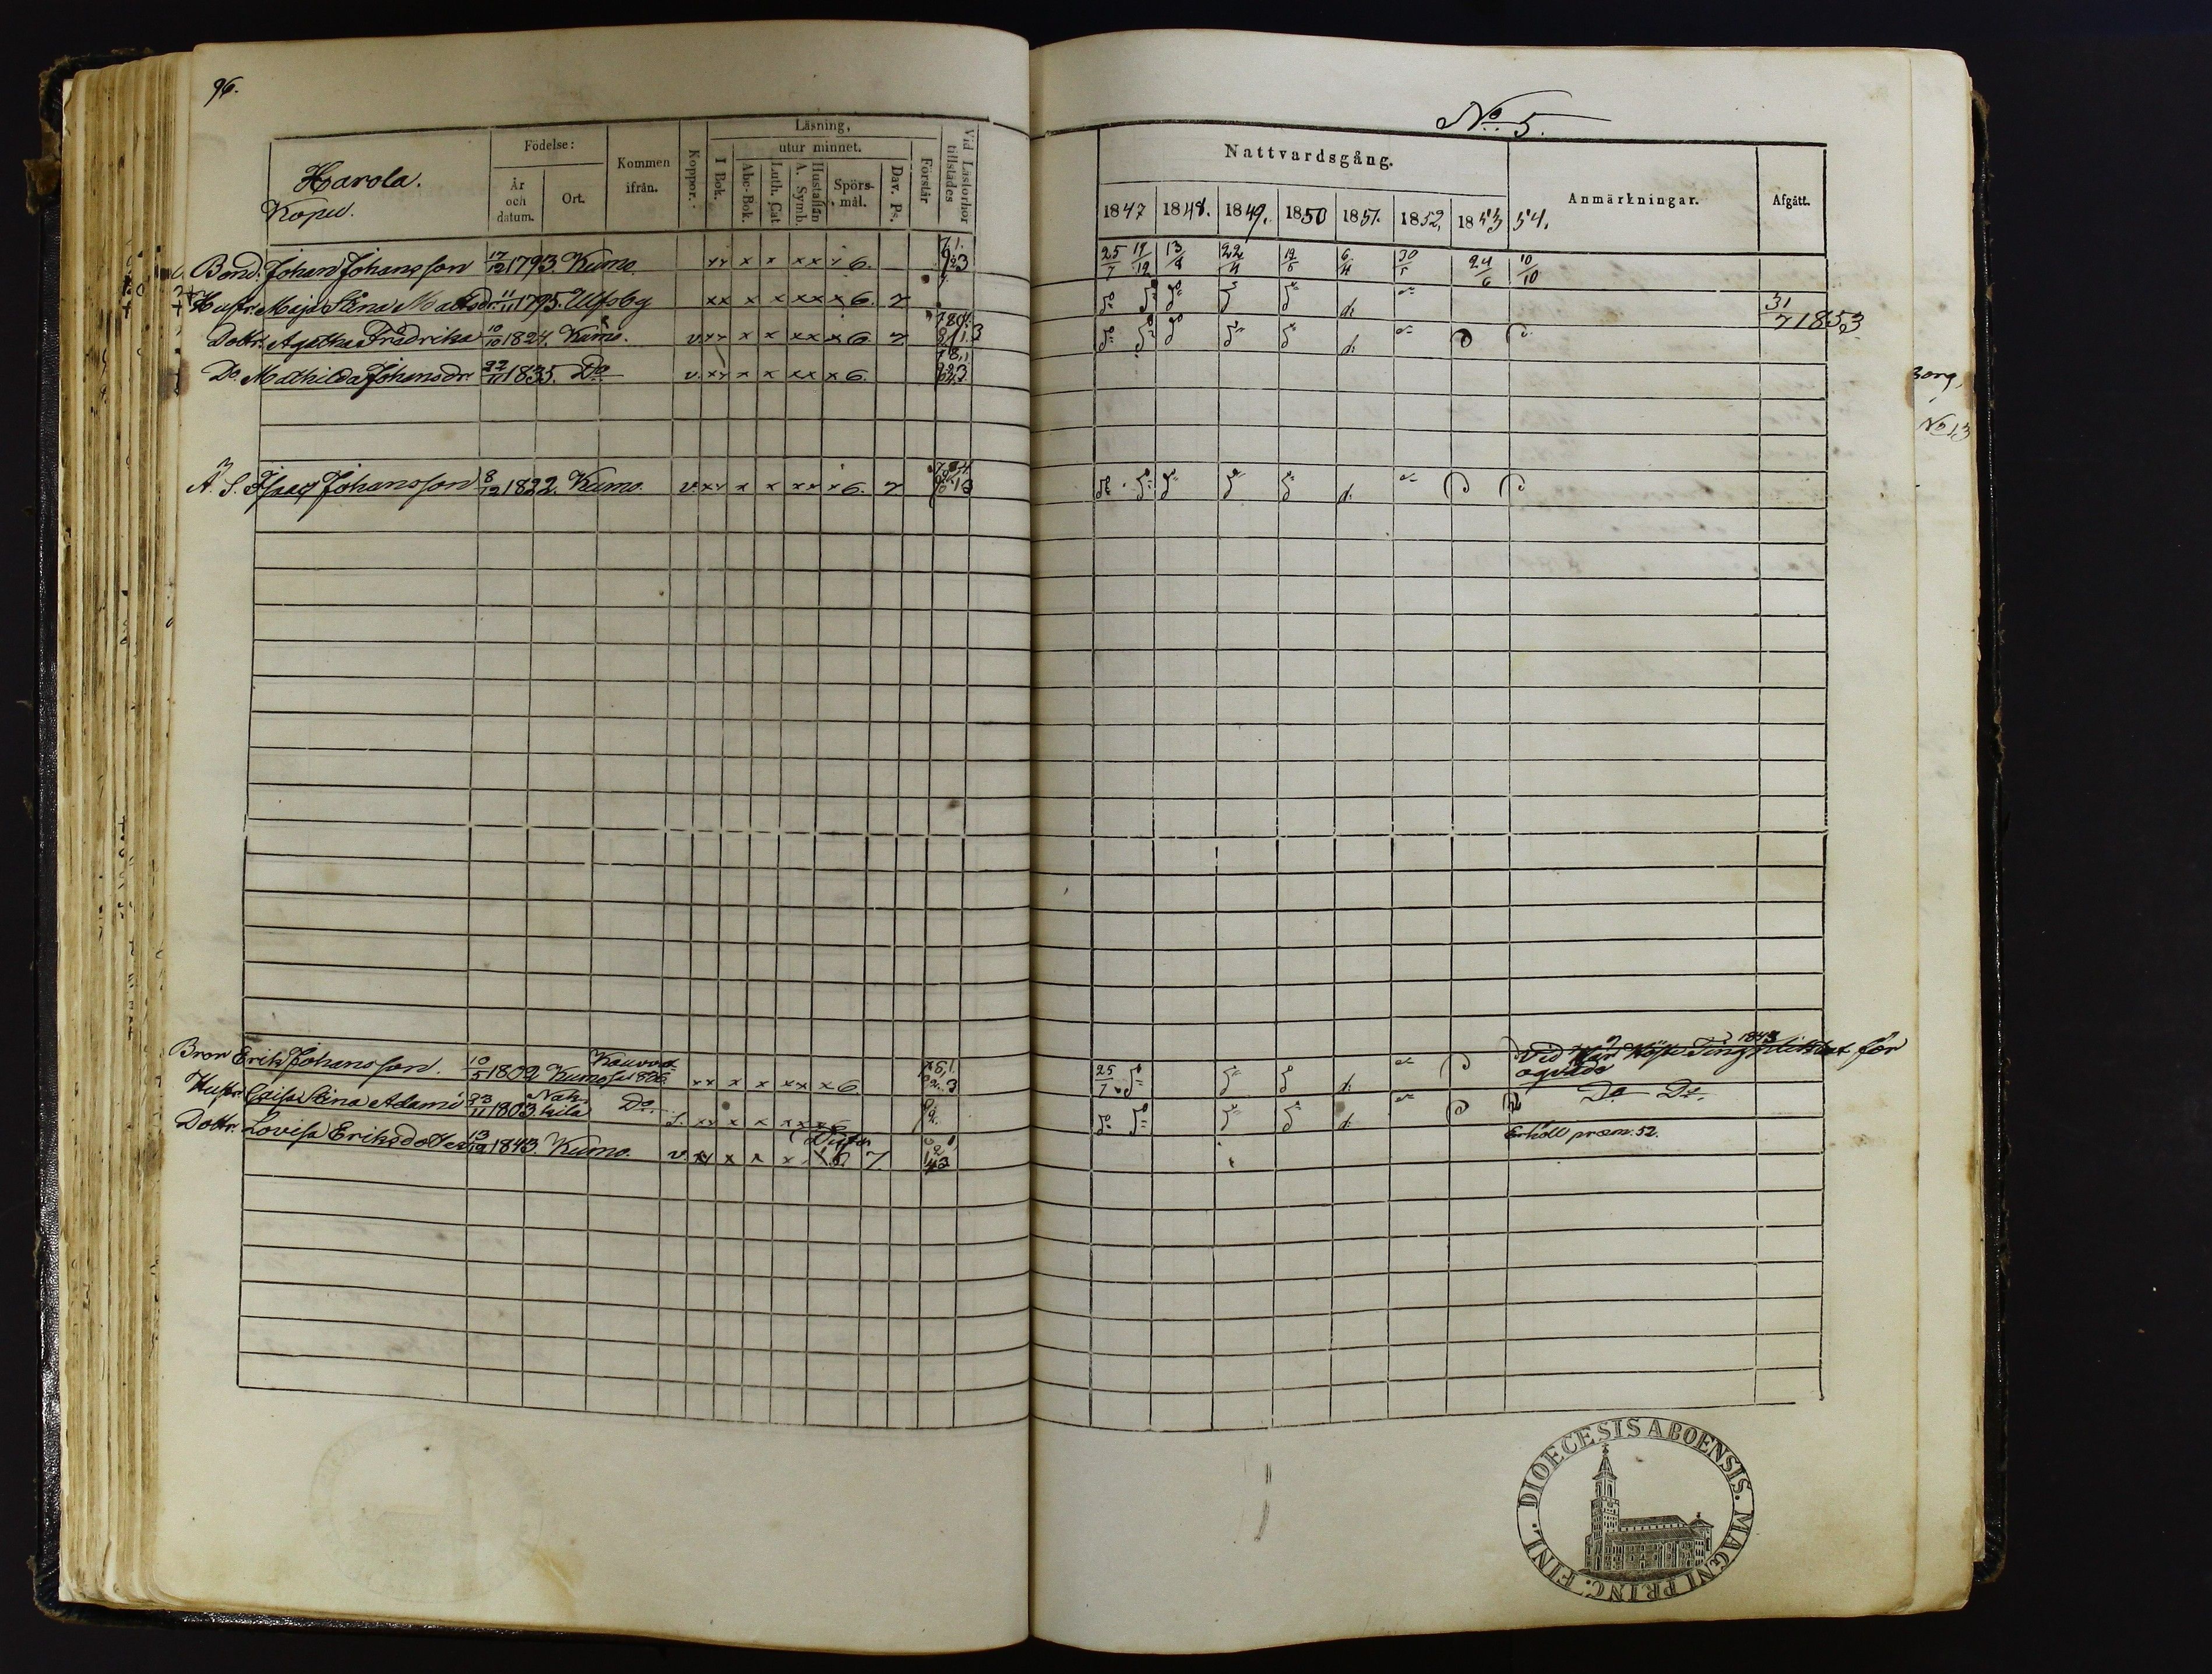 96.
Harola.
Kopu.
Födelse:
År och datum.
Ort.
Kommen ifrån.
Koppor.
Läsning,
utur minnet.
I Bok.
Abc-Bok.
Luth. Cat.
Hustaflan A. Symb.
Spörsmål.
Dav. Ps.
Förstår
Vid Läsförhör tillstädes
Bond. Johan Johansson 17/12 1793. Kumo. xx x x xx x 6.
Hustr. Maja Stina Mattsdr. 11/11 1795. Ulfsby xx x x xx x 6. 7
Dottr. Agatha Fredrika 10/10 1824. Kumo. v. xx x x xx x 6. 7
Do. Mathilda Johansdr. 1835. Do v. xx x x xx x 6.
Å. S. Isaac Johansson 8/12 1822. Kumo. v. xx x x xx x 6. 7
Bror Erik Johansson. 10/5 1802 Kumo xx x x xx x 6.
Hustr. Caisa Stina Adami 23/11 1803 Do. xx x x
Dottr. Lovisa Eriksdotter 1843. Kumo. v. x x x 7
No. 5.
Nattvardsgång.
Anmärkningar.
Afgått.
1847 1848. 1849. 1850 1851. 1852. 1853 54.
25/7 19/12 13/8 22/4 6/4 30/5 24/6 10/10
d.
31/7 1853
d.
d.
1843
Vid Höste Ting för
25/7 d.
d. Do Do
Erhöll præm. 52.
Borg,
No 13
DIOECESIS ABOENSIS. MAGNI PRINC. FINL.